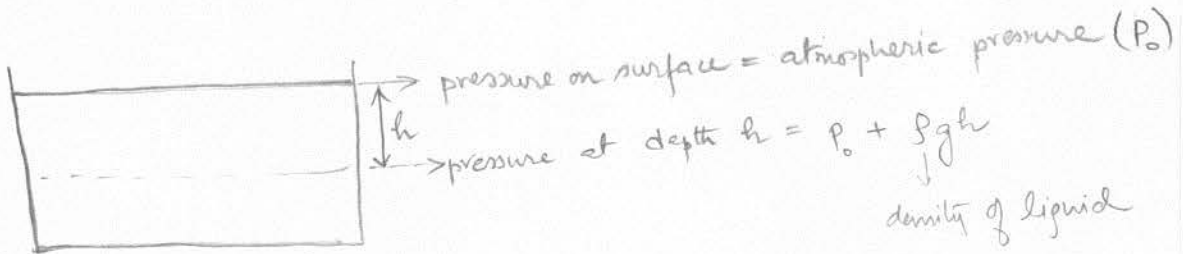 pressure on surface = atmospheric pressure (P₀)
h
pressure at depth h = P₀ + ρgh
density of liquid